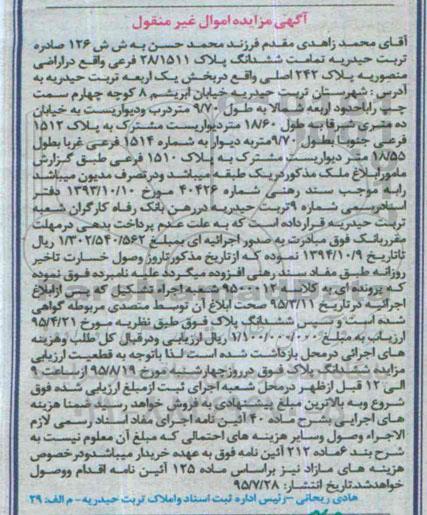 آگهی مزایده اموال غیر منقول
آقای محمد زاهدی مقدم فرزند محمد حسن به ش ش ۱۲۶ صادره
تربت حیدریه تمامت ششدانگ پلاک ۲۸/۱۵۱۱ فرعی واقع دراراضی
منصوریه پلاک ۲۴۲ اصلی واقع دربخش یک اربعه تربت حیدریه به
آدرس : شهرستان تربت حیدریه خیابان ابریشم ۸ کوچه چهارم سمت
چپ راباحدود اربعه شمالا به طول ۹/۷۰ متردرب ودیواریست به خیابان
ده متری شرقا به طول ۱۸/۶۰ متردیواریست مشترک به پلاک ۱۵۱۲
فرعی جنوبا بطول ۹/۷۰متربه دیوار به شماره ۱۵۱۴ فرعی غربا بطول
۱۸/۵۵ متر دیواریست مشترک به پلاک ۱۵۱۰ فرعی طبق گزارش
مامورابلاغ ملک مذکوردریک طبقه میباشد ودرتصرف مدیون میباشد
رابا موجب سند رهنی شماره ۴۰۴۲۶ مورخ ۱۳۹۳/۱۰/۱۰ دفتر
اسنادرسمی شماره ۹تربت حیدریه دررهن بانک رفاه کارگران شعبه
تربت حیدریه قرارداده است که به علت عدم پرداخت بدهی درمهلت
مقرربانک فوق مبادرت به صدور اجرائیه ای بمبلغ ۱/۳۰۲/۵۴۰/۵۶۲ ریال
تاتاریخ ۱۳۹۴/۱۰/۹ نموده که ازتاریخ مذکورتاروز وصول خسارت تاخیر
روزانه طبق مفاد سند رهنی افزوده میگردد علیه نامبرده فوق نموده
که پرونده ای به کلاسه ۹۵۰۰۰۱۲ شعبه اجراء تشکیل که پس ازابلاغ
اجرائیه درتاریخ ۹۵/۳/۱۱ صحت ابلاغ آن توسط متصدی مربوطه گواهی
شده است و سپس ششدانگ پلاک فوق طبق نظریه مورخ ۹۵/۴/۲۱
ارزیاب به مبلغ ۱/۱۰۰/۰۰۰/۰۰۰ ریال ارزیابی ودرقبال کل طلب وهزینه
های اجرائی درمحل بازداشت شده است لذا باتوجه به قطعیت ارزیابی
مزایده ششدانگ پلاک فوق درروزچهارشنبه مورخ ۹۵/۸/۱۹ ازساعت ۹
الی ۱۲ قبل ازظهر درمحل شعبه اجرای ثبت ازمبلغ ارزیابی شده فوق
شروع وبه بالاترین مبلغ پیشنهادی به فروش خواهد رسید ضمنا هزینه
های اجرایی بشرح ماده ۴۰ آئین نامه اجرای مفاد اسناد رسمی لازم
الاجراء وصول وسایر هزینه های احتمالی که مبلغ آن معلوم نیست به
شرح بند ۶ماده ۲۱۲ آئین نامه فوق به عهده خریدار میباشدودرخصوص
هزینه های مازاد نیز براساس ماده ۱۲۵ آئین نامه اقدام ووصول
خواهدشد.تاریخ انتشار: ۹۵/۷/۲۸
هادی ریحانی -رئیس اداره ثبت اسناد واملاک تربت حیدریه- م الف: ۲۹